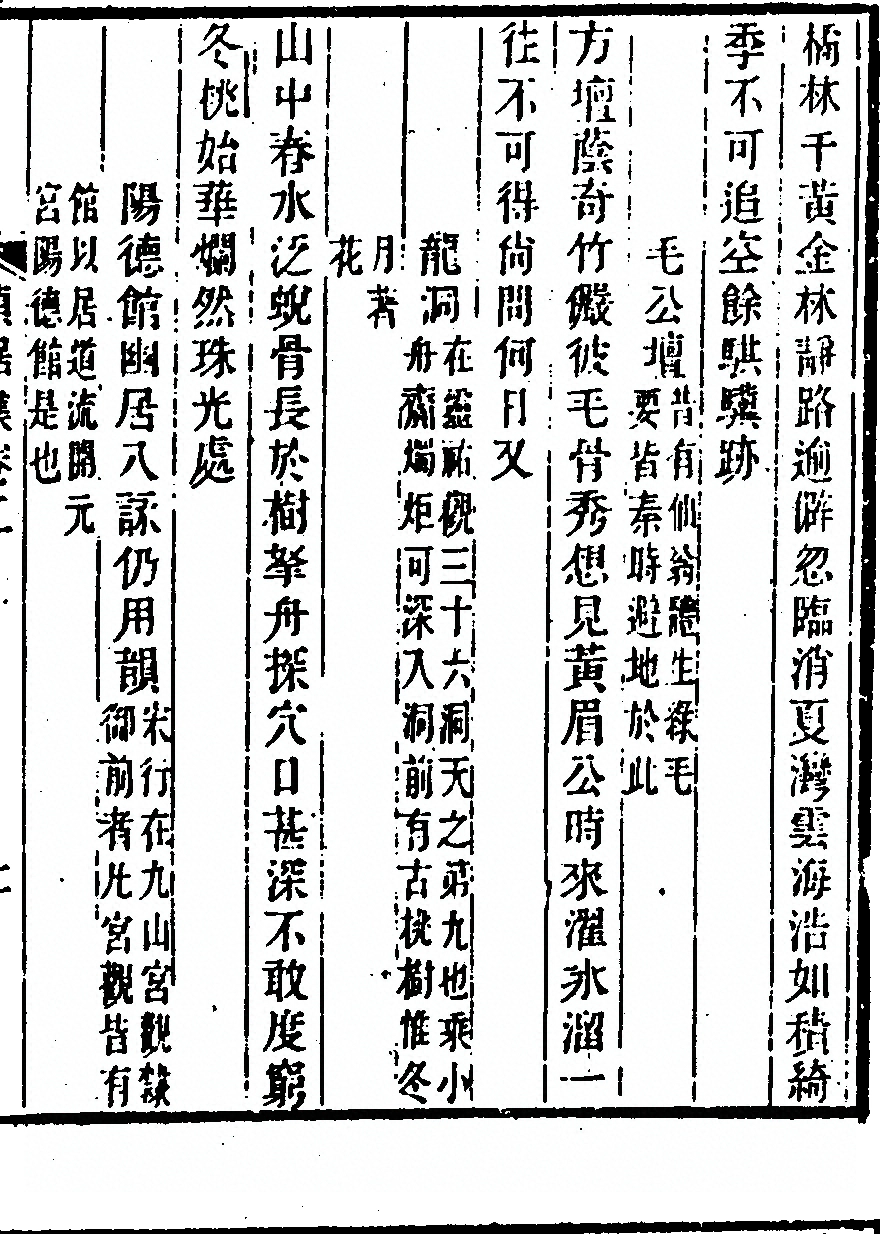 橘林千黃金林靜路逾僻忽臨消夏灣雲海浩如積綺
季不可追空餘騏驥跡
毛公壇昔有仙翁體生綠毛
要皆秦時避地於此
方壇蔭奇竹儼彼毛骨秀想見黃眉公時來濯氷溜一
往不可得尙問何日又
龍洞在靈祐觀三十六洞天之第九也乘小
舟齋燭炬可深入洞前有古桃樹惟冬
月著
花
山中春水泛蛻骨長於樹拏舟探穴口甚深不敢度窮
冬桃始華爛然珠光處
陽德館幽居八詠仍用韻宋行在九山宮觀隸
御前者凡宮觀皆有
館以居道流開元
宮陽德館是也